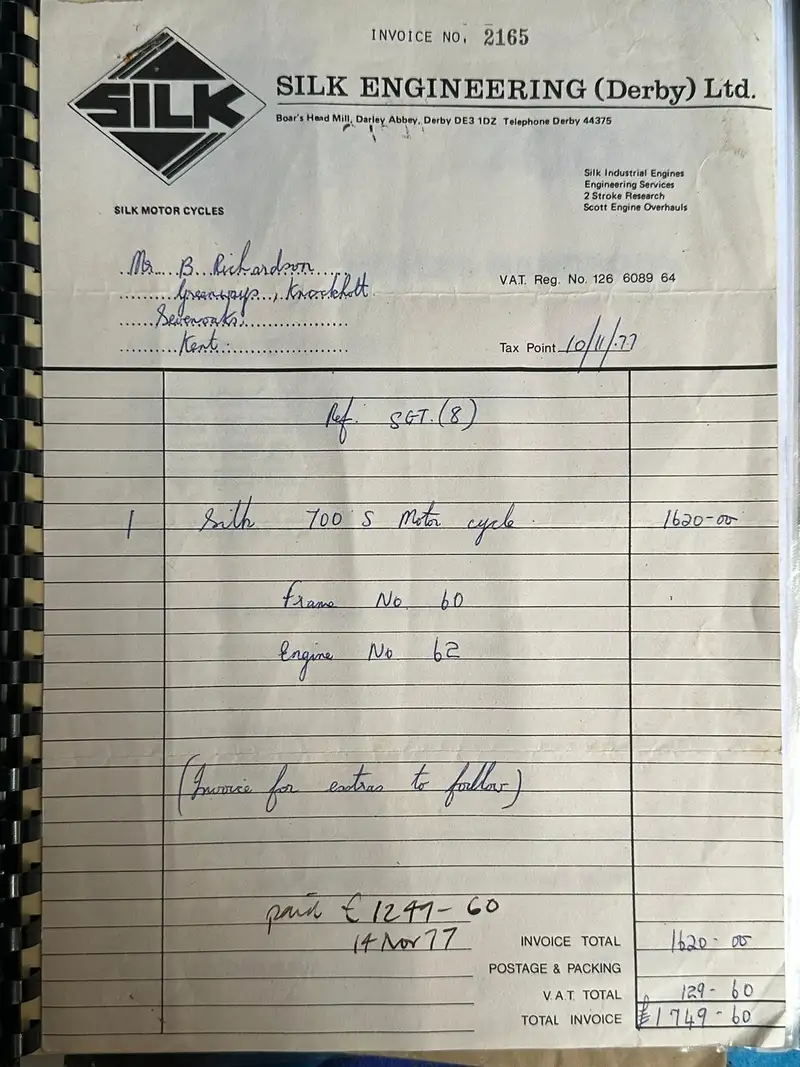 INVOICE NO. 2165
SILK
SILK ENGINEERING (Derby) Ltd.
Boar's Head Mill, Darley Abbey, Derby DE3 1DZ Telephone Derby 44375
Silk Industrial Engines
Engineering Services
2 Stroke Research
Scott Engine Overhauls
SILK MOTOR CYCLES
Mr. B. Richardson
Greenways, Knockholt
Sevenoaks.
Kent.
V.A.T. Reg. No. 126 6089 64
Tax Point 10/11/77
Ref. SGT.(8)
1 Silk 700 S Motor cycle. 1620-00
Frame No. 60
Engine No. 62
(Invoice for extras to follow)
paid £1249-60
14 Nov 77
INVOICE TOTAL 1620-00
POSTAGE & PACKING
V.A.T. TOTAL 129-60
TOTAL INVOICE £1749-60